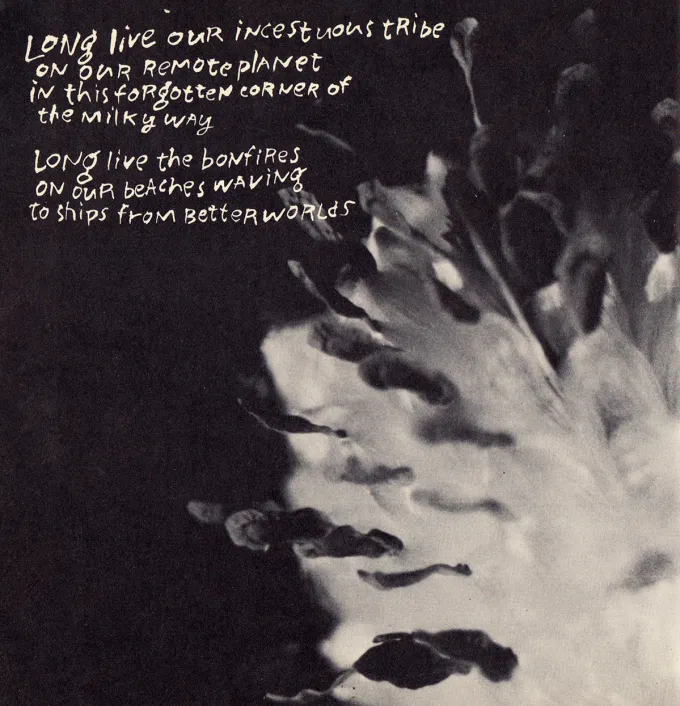 Long live our incestuous tribe
on our remote planet
in this forgotten corner of
the Milky Way
Long live the bonfires
on our beaches waving
to ships from better worlds